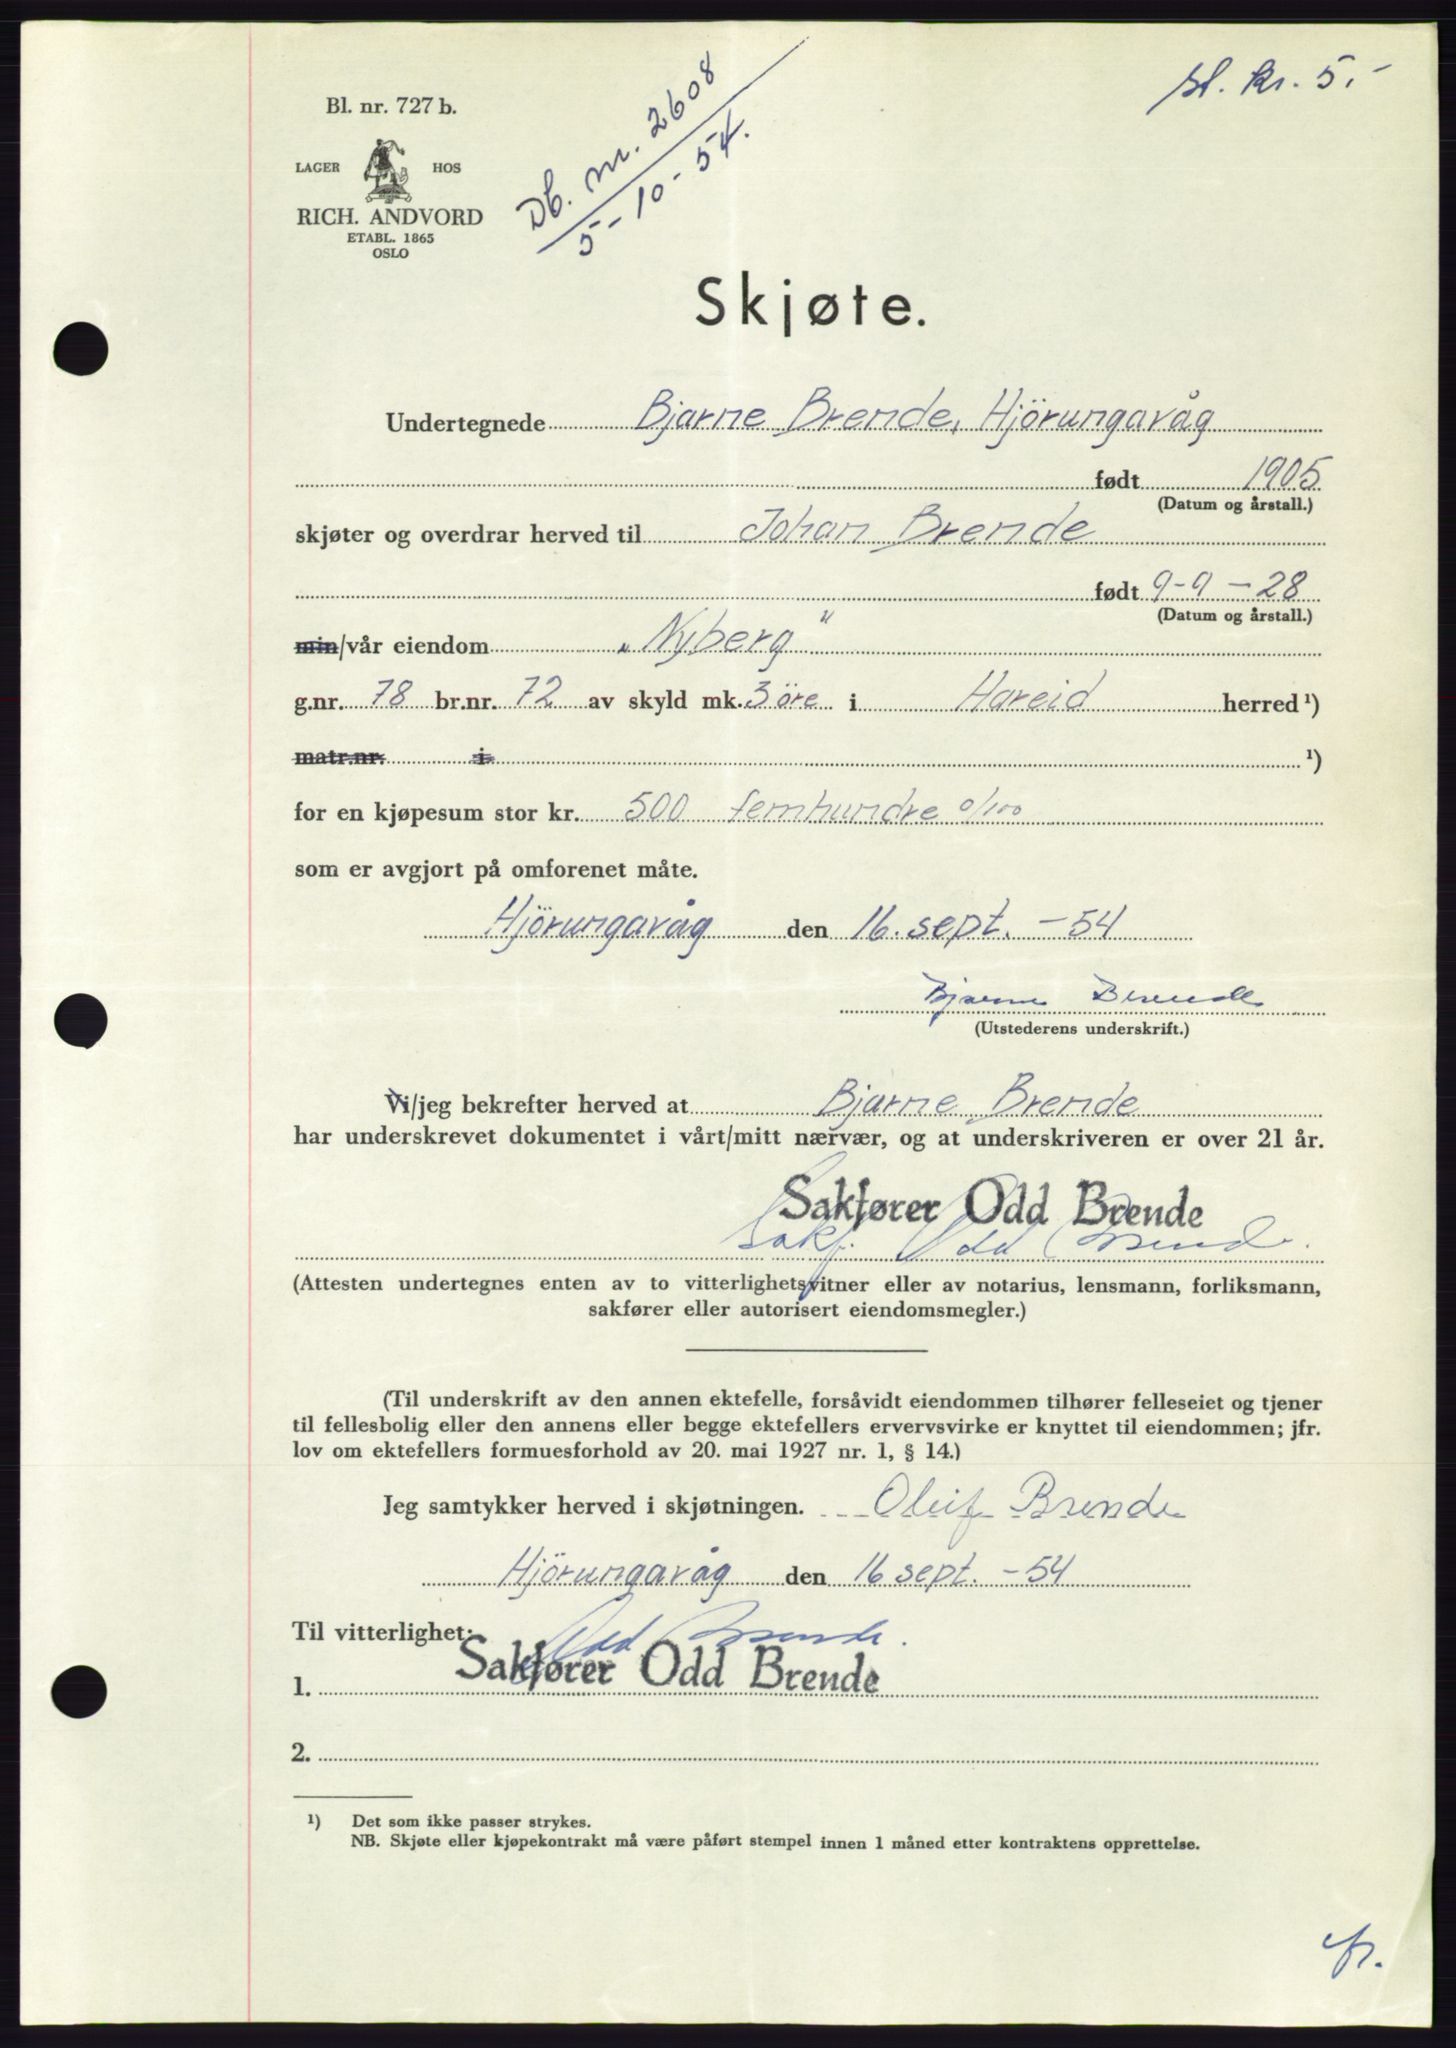 st. kr. 5.-
Bl. nr. 727 b.
Db. nr. 2608
5-10-54.
LAGER HOS
RICH. ANDVORD
ETABL. 1865
OSLO
Skjøte.
Undertegnede Bjarne Brende, Hjörungavåg
født 1905
(Datum og årstall.)
skjøter og overdrar herved til Johan Brende
født 9-9-28
(Datum og årstall.)
min/vår eiendom „Nyberg"
g.nr. 78 br.nr. 72 av skyld mk. 3 öre i Hareid herred ¹)
matr.nr. i ¹)
for en kjøpesum stor kr. 500 femhundre 0/100
som er avgjort på omforenet måte.
Hjörungavåg den 16. sept. -54
Bjarne Brende
(Utstederens underskrift.)
Vi/jeg bekrefter herved at Bjarne Brende
har underskrevet dokumentet i vårt/mitt nærvær, og at underskriveren er over 21 år.
Sakfører Odd Brende
Sakf. Odd Brende.
(Attesten undertegnes enten av to vitterlighetsvitner eller av notarius, lensmann, forliksmann,
sakfører eller autorisert eiendomsmegler.)
(Til underskrift av den annen ektefelle, forsåvidt eiendommen tilhører felleseiet og tjener
til fellesbolig eller den annens eller begge ektefellers ervervsvirke er knyttet til eiendommen; jfr.
lov om ektefellers formuesforhold av 20. mai 1927 nr. 1, § 14.)
Jeg samtykker herved i skjøtningen. Oleif Brende
Hjörungavåg den 16 sept. -54
Til vitterlighet: Odd Brende.
Sakfører Odd Brende
1.
2.
¹) Det som ikke passer strykes.
NB. Skjøte eller kjøpekontrakt må være påført stempel innen 1 måned etter kontraktens opprettelse.